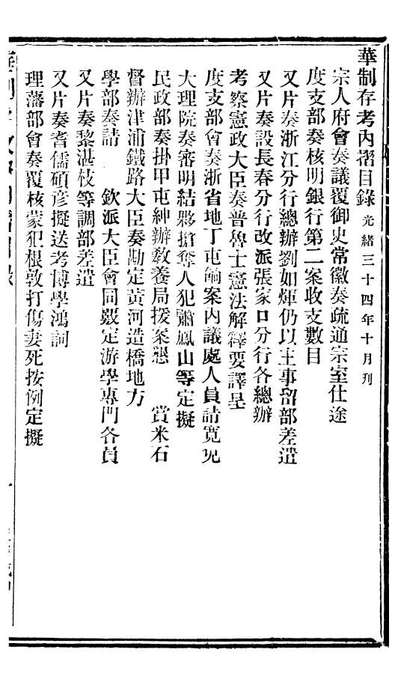 華制存考內摺目錄 光緒三十四年十月刊
宗人府會奏議覆御史常徽奏疏通宗室仕途
度支部奏核明銀行第二案收支數目
又片奏浙江分行總辦劉如煇仍以主事留部差遣
又片奏設長春分行改派張家口分行各總辦
考察憲政大臣奏普魯士憲法解釋要譯呈
度支部會奏浙省地丁屯餉案內議處人員請寬免
大理院奏審明結夥搶奪人犯蕭鳳山等定擬
民政部奏掛甲屯紳辦教養局援案懇 賞米石
督辦津浦鐵路大臣奏勘定黃河造橋地方
學部奏請 欽派大臣會同覈定游學專門各員
又片奏黎湛枝等調部差遣
又片奏耆儒碩彥擬送考博學鴻詞
理藩部會奏覆核蒙犯根敦打傷妻死按例定擬